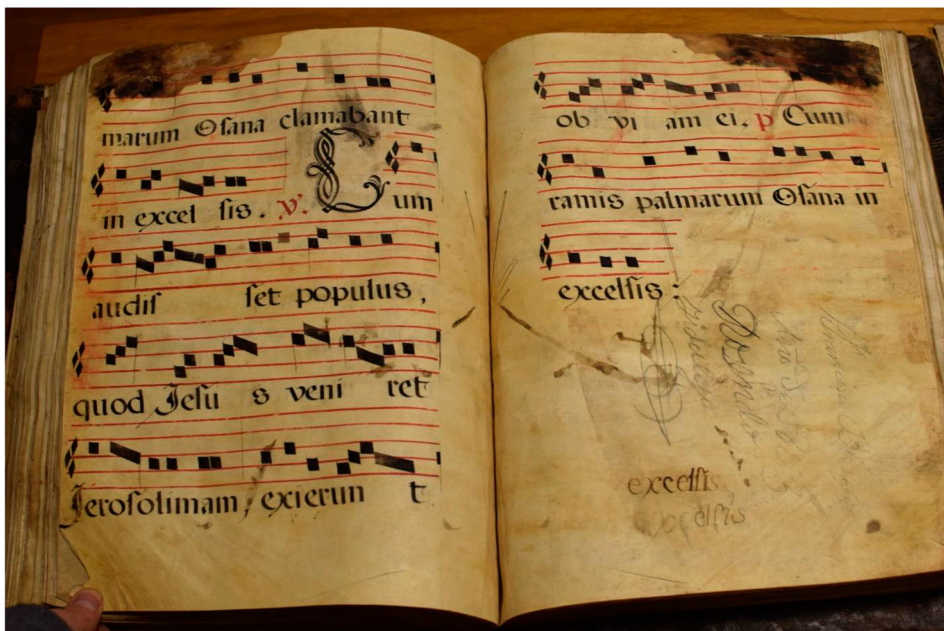 marum Osana clamabant
in excel sis. V. Cum
audis set populus,
quod Jesu s veni ret
Jerosolimam, exierun t
ob vi am ei, p Cum
ramis palmarum Osana in
excelsis:
Rosendo
excelsis
excelsis